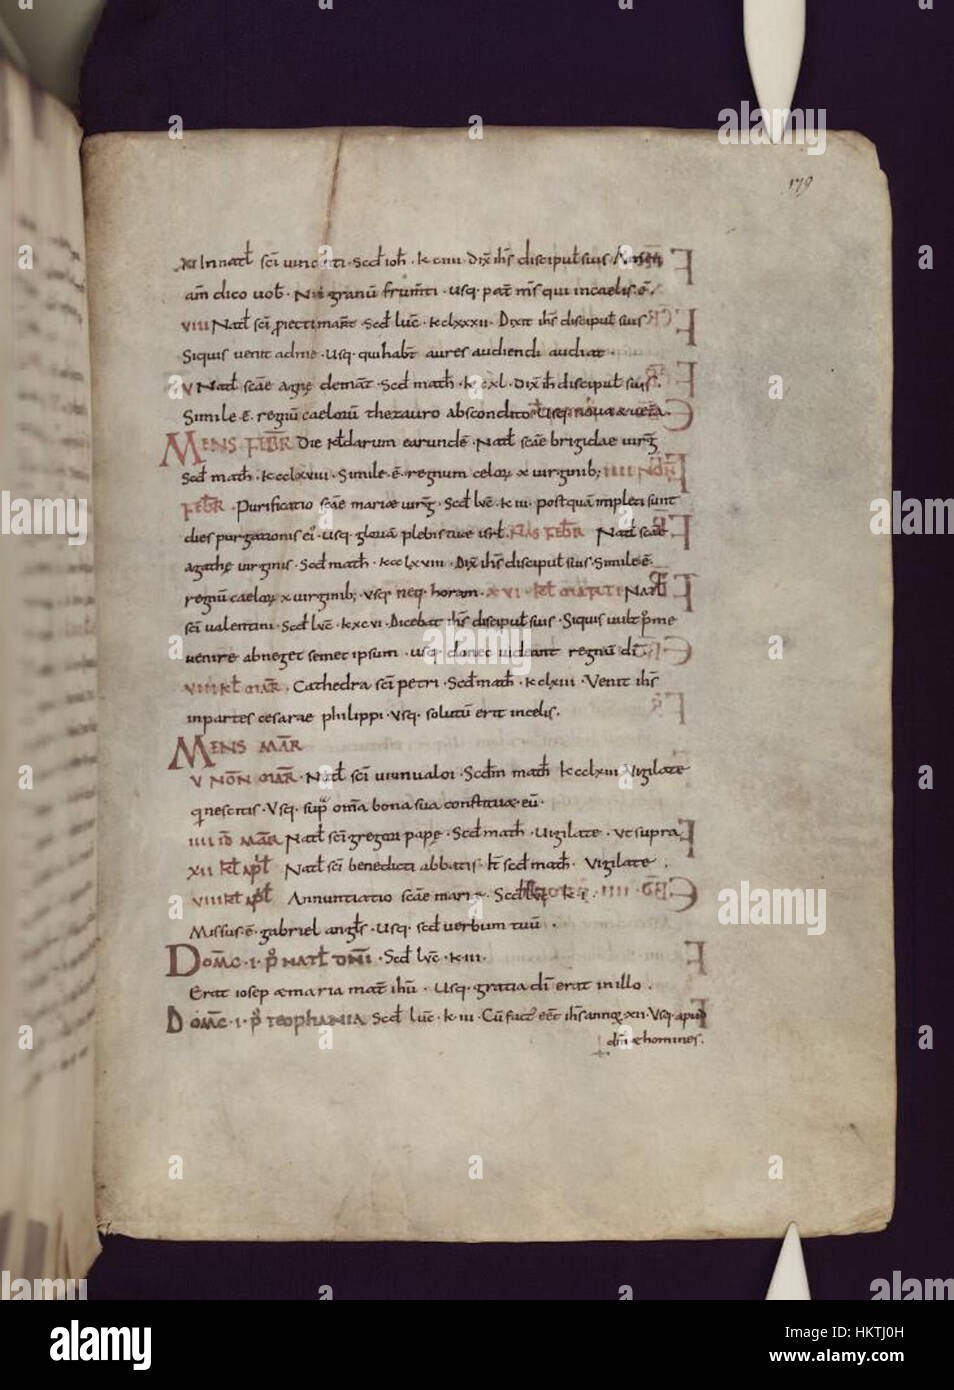 179
XI In natł sc̄i uincenti · Scd̄ ioh̄ · k̄ ciiii · Dix̄ ih̄s discipuł suis · Amen
am̄ dico uob̄ · Nisi granū frum̄ti · usq · pat̄ m̄s qui in caelis ē.
VIII Natł sc̄i p̄iecti mar̄t Scd̄ luc̄ · k̄ clxxxii · Dixit ih̄s discipuł suis
Siquis uenit ad me · Usq · qui hab̄t aures audiendi audiat ·
V Natł sc̄ae agnę demāt · Scd̄ math̄ · k̄ cxl · Dix̄ ih̄ discipuł suis.
Simile ē. regnū caelorū thezauro abscondito. Usq · noua & uet̄a.
MENS FEB̄R Die kłdarum earundē · Natł sc̄ae brigidae uirḡ
Scd̄ math̄ · k̄ cclxviii · Simile · ē · regnum celoꝝ x uirginib; IIII NON̄
FEB̄R · Purificatio sc̄ae mariae uirḡ · Scd̄ luc̄ · k̄ iii · postquā impleti sunt
dies purgationis ei᾿ · Usq · gloriā plebis tuae isrł. NAS FEB̄R Natł sc̄ae
agathę uirginis · Scd̄ math̄ · k̄ cclxviii · Dix̄ ih̄s discipuł suis · Simile · ē ·
regnū caeloꝝ x uirginib; · usq neq · horam · XVI · kł MARTI Natł
sc̄i ualentini · Scd̄ luc̄ · k̄ xcvi · Dicebat ih̄s discipuł suis · Siquis uult p̄ me
uenire abneget semet ipsum · usq · donec uideant regnū dī.
VIII kł MAR̄ · Cathedra sc̄i petri · Scd̄ math̄ · k̄ clxiii · Venit ih̄s
in partes cesarae philippi · Usq · solutū erit in celis.
MENS MAR̄
V NON̄ MAR̄ · Natł sc̄i uinualoi · Scdm̄ math̄ k̄ cclxiii Vigilate
q nescitis · Usq · sup om̄a bona sua constitu& · eū ·
IIII ID̄ MAR̄ Natł sc̄i gregori papę · Scd̄ math̄ · Uigilate · Vt supra
XII kł apł Natł sc̄i benedicti abbatis · kł scd̄ math̄ · Vigilate .
VIII kł apł Annuntiatio sc̄ae marię · Scd̄ luc̄ k̄ · i · .
Missus · ē · gabriel angłs · Usq · scd̄ uerbum tuū ·
DOM̄C · I · P᾿ NATŁ DN̄I · Scd̄ luc̄ · k̄ iii ·
Erat iosep & maria mat̄ ih̄ū · Usq · gratia dī erat in illo .
DOM̄C · I · P᾿ TEOPHANIA Scd̄ luc̄ · k̄ iii · Cū fact᾿ eēt ih̄s annoꝝ xii · Usq · apud
dm̄ & homines.
alamy
Image ID: HKTJ0H
www.alamy.com